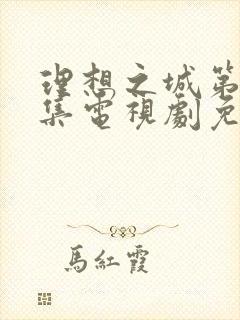 理想之城第
集電視劇免
馬紅霞